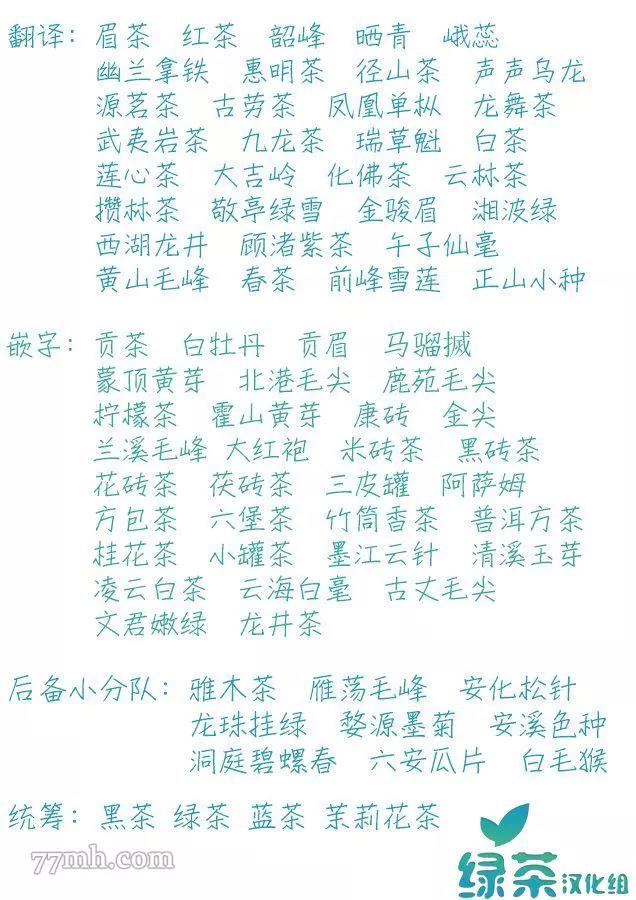 翻译：眉茶 红茶 韶峰 晒青 峨蕊
幽兰拿铁 惠明茶 径山茶 声声乌龙
源茗茶 古劳茶 凤凰单枞 龙舞茶
武夷岩茶 九龙茶 瑞草魁 白茶
莲心茶 大吉岭 化佛茶 云林茶
攒林茶 敬亭绿雪 金骏眉 湘波绿
西湖龙井 顾渚紫茶 午子仙毫
黄山毛峰 春茶 前峰雪莲 正山小种
嵌字：贡茶 白牡丹 贡眉 马骝搣
蒙顶黄芽 北港毛尖 鹿苑毛尖
柠檬茶 霍山黄芽 康砖 金尖
兰溪毛峰 大红袍 米砖茶 黑砖茶
花砖茶 茯砖茶 三皮罐 阿萨姆
方包茶 六堡茶 竹筒香茶 普洱方茶
桂花茶 小罐茶 墨江云针 清溪玉芽
凌云白茶 云海白毫 古丈毛尖
文君嫩绿 龙井茶
后备小分队：雅木茶 雁荡毛峰 安化松针
龙珠挂绿 婺源墨菊 安溪色种
洞庭碧螺春 六安瓜片 白毛猴
统筹：黑茶 绿茶 蓝茶 茉莉花茶
77mh.com
绿茶汉化组